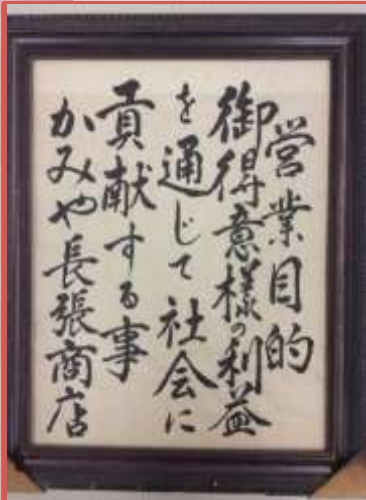 営業目的
御得意様の利益
を通じて社会に
貢献する事
かみや長張商店